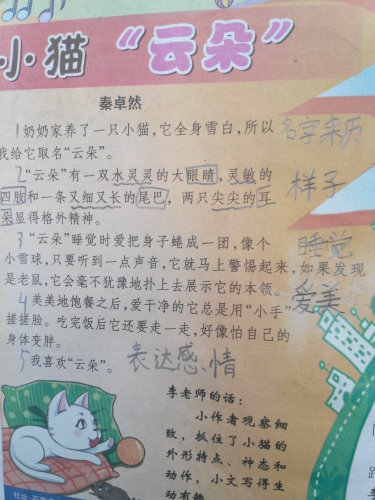 小猫“云朵”
秦卓然
1奶奶家养了一只小猫，它全身雪白，所以
我给它取名“云朵”。
名字来历
2“云朵”有一双水灵灵的大眼睛，灵敏的
四肢和一条又细又长的尾巴，两只尖尖的耳
朵显得格外精神。
样子
3“云朵”睡觉时爱把身子蜷成一团，像个
小雪球，只要听到一点声音，它就马上警惕起来，如果发现
是老鼠，它会毫不犹豫地扑上去展示它的本领。
睡觉
4美美地饱餐之后，爱干净的它总是用“小手”
搓搓脸。吃完饭后它还要走一走，好像怕自己的
身体变胖。
爱美
5我喜欢“云朵”。
表达感情
李老师的话：
小作者观察细
致，抓住了小猫的
外形特点、神态和
动作，小文写得生
动有趣